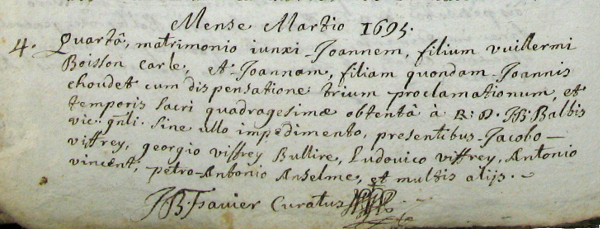 Mense Martio 1695.
4. Quartâ, matrimonio iunxi Joannem, filium vuillermi
Boisson carle, et Joannam, filiam quondam Joannis
choudet cum dispensatione trium proclamationum, et
temporis sacri quadragesimæ obtentâ à R: D. JB: Balbis
vic: gnli. sine ullo impedimento, presentibus Jacobo
viffrey, georgio viffrey Bullire, Ludovico viffrey, Antonio
vincent, petro-Antonio Anselme, et multis alijs.
JB. Curatus